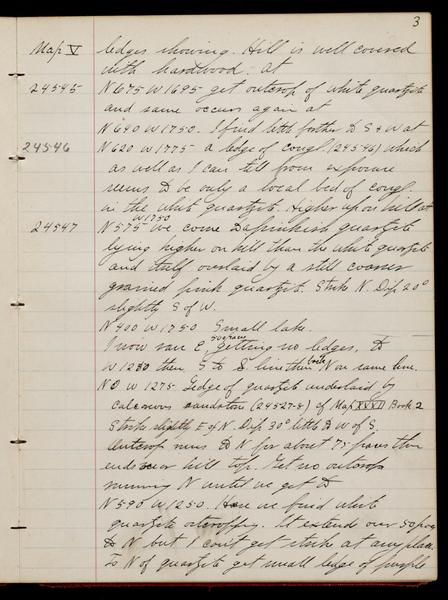 3
Map V ledges showing. Hill is well covered
with hardwood; at
24545 N 675 W 1695 get outcrop of white quartzite
and same occurs again at
N 640 W 1750. I find little farther to S & W at
24546 N 620 W 1775 a ledge of congl. (24546) which
as well as I can tell from exposure
seems to be only a local bed of congl.
in the white quartzite. Higher up on hill at
W 1750
24547 N 575 we come to a pinkish quartzite
lying higher on hill than the white quartzite
and itself overlaid by a still coarser
grained pink quartzite. Strike N. Dip 20°
slightly S of W.
N 400 W 1750 Small lake.
I now ran E, getting no ledges, to
W 1250 then S to S. line then back N on same line.
N 0 W 1275 Ledge of quartzite underlaid by
calcareous sandstone (24527-8) cf Map XXXVI Book 2
Strike slightly E of N. Dip 30° little to W of S.
Outcrop runs to N for about 75 paces then
ends over hill top. Get no outcrop
running N until we get to
N 590 W 1250. Here we find white
quartzite outcropping. It extends over 50 paces
to N but I can't get strike at any place.
To N of quartzite get small ledge of purple